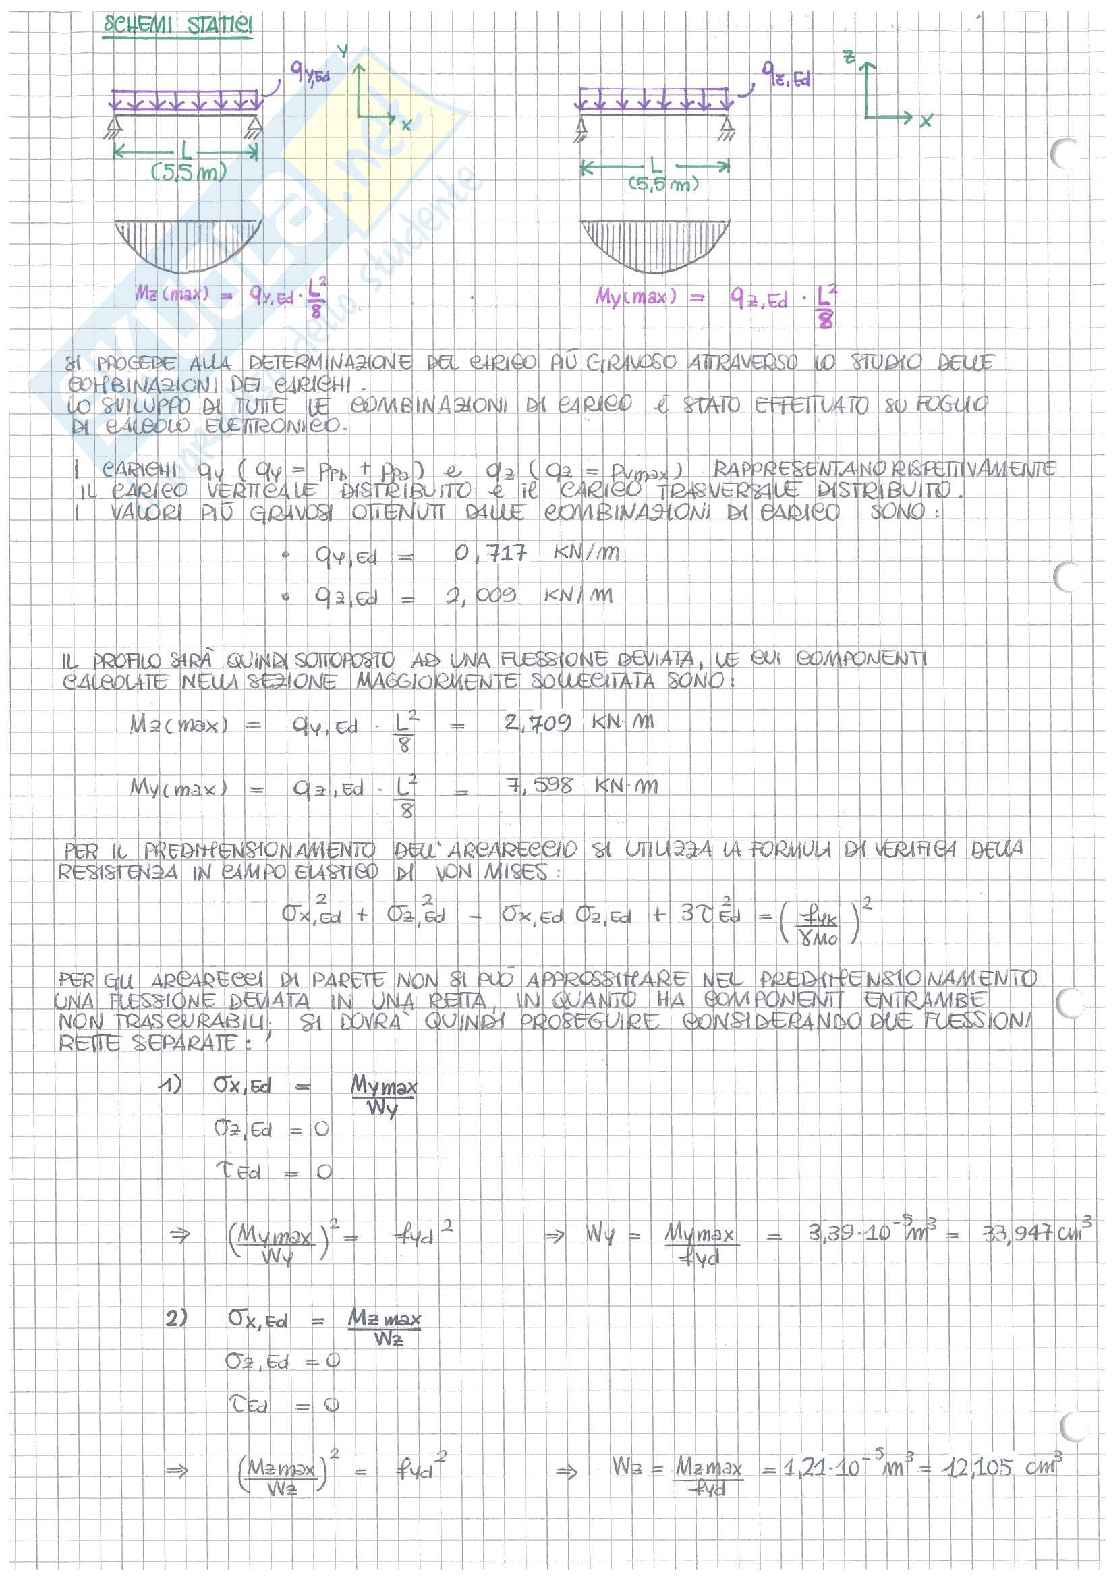 SCHEMI STATICI
qy,Ed
Y
X
L
(5,5 m)
Mz(max) = qy,Ed · L²/8
qz,Ed
Z
X
L
(5,5 m)
My(max) = qz,Ed · L²/8
SI PROCEDE ALLA DETERMINAZIONE DEL CARICO PIÙ GRAVOSO ATTRAVERSO LO STUDIO DELLE
COMBINAZIONI DEI CARICHI.
LO SVILUPPO DI TUTTE LE COMBINAZIONI DI CARICO È STATO EFFETTUATO SU FOGLIO
DI CALCOLO ELETTRONICO.
I CARICHI qy ( qy = ppb + ppa ) e qz ( qz = pvmax ) RAPPRESENTANO RISPETTIVAMENTE
IL CARICO VERTICALE DISTRIBUITO e il CARICO TRASVERSALE DISTRIBUITO.
I VALORI PIÙ GRAVOSI OTTENUTI DALLE COMBINAZIONI DI CARICO SONO:
• qy,Ed = 0,717 KN/m
• qz,Ed = 2,009 KN/m
IL PROFILO SARÀ QUINDI SOTTOPOSTO AD UNA FLESSIONE DEVIATA, LE CUI COMPONENTI
CALCOLATE NELLA SEZIONE MAGGIORMENTE SOLLECITATA SONO:
Mz(max) = qy,Ed · L²/8 = 2,709 KN·m
My(max) = qz,Ed · L²/8 = 7,598 KN·m
PER IL PREDIMENSIONAMENTO DELL'ARCARECCIO SI UTILIZZA LA FORMULA DI VERIFICA DELLA
RESISTENZA IN CAMPO ELASTICO DI VON MISES:
σx,Ed² + σz,Ed² - σx,Ed σz,Ed + 3τEd² = (fyk/γM0)²
PER GLI ARCARECCI DI PARETE NON SI PUÒ APPROSSIMARE NEL PREDIMENSIONAMENTO
UNA FLESSIONE DEVIATA IN UNA RETTA, IN QUANTO HA COMPONENTI ENTRAMBE
NON TRASCURABILI; SI DOVRÀ QUINDI PROSEGUIRE CONSIDERANDO DUE FLESSIONI
RETTE SEPARATE:
1) σx,Ed = Mymax/Wy
σz,Ed = 0
τEd = 0
⇒ (Mymax/Wy)² = fyd² ⇒ Wy = Mymax/fyd = 3,39·10⁻⁵m³ = 33,947 cm³
2) σx,Ed = Mzmax/Wz
σz,Ed = 0
τEd = 0
⇒ (Mzmax/Wz)² = fyd² ⇒ Wz = Mzmax/fyd = 1,21·10⁻⁵m³ = 12,105 cm³